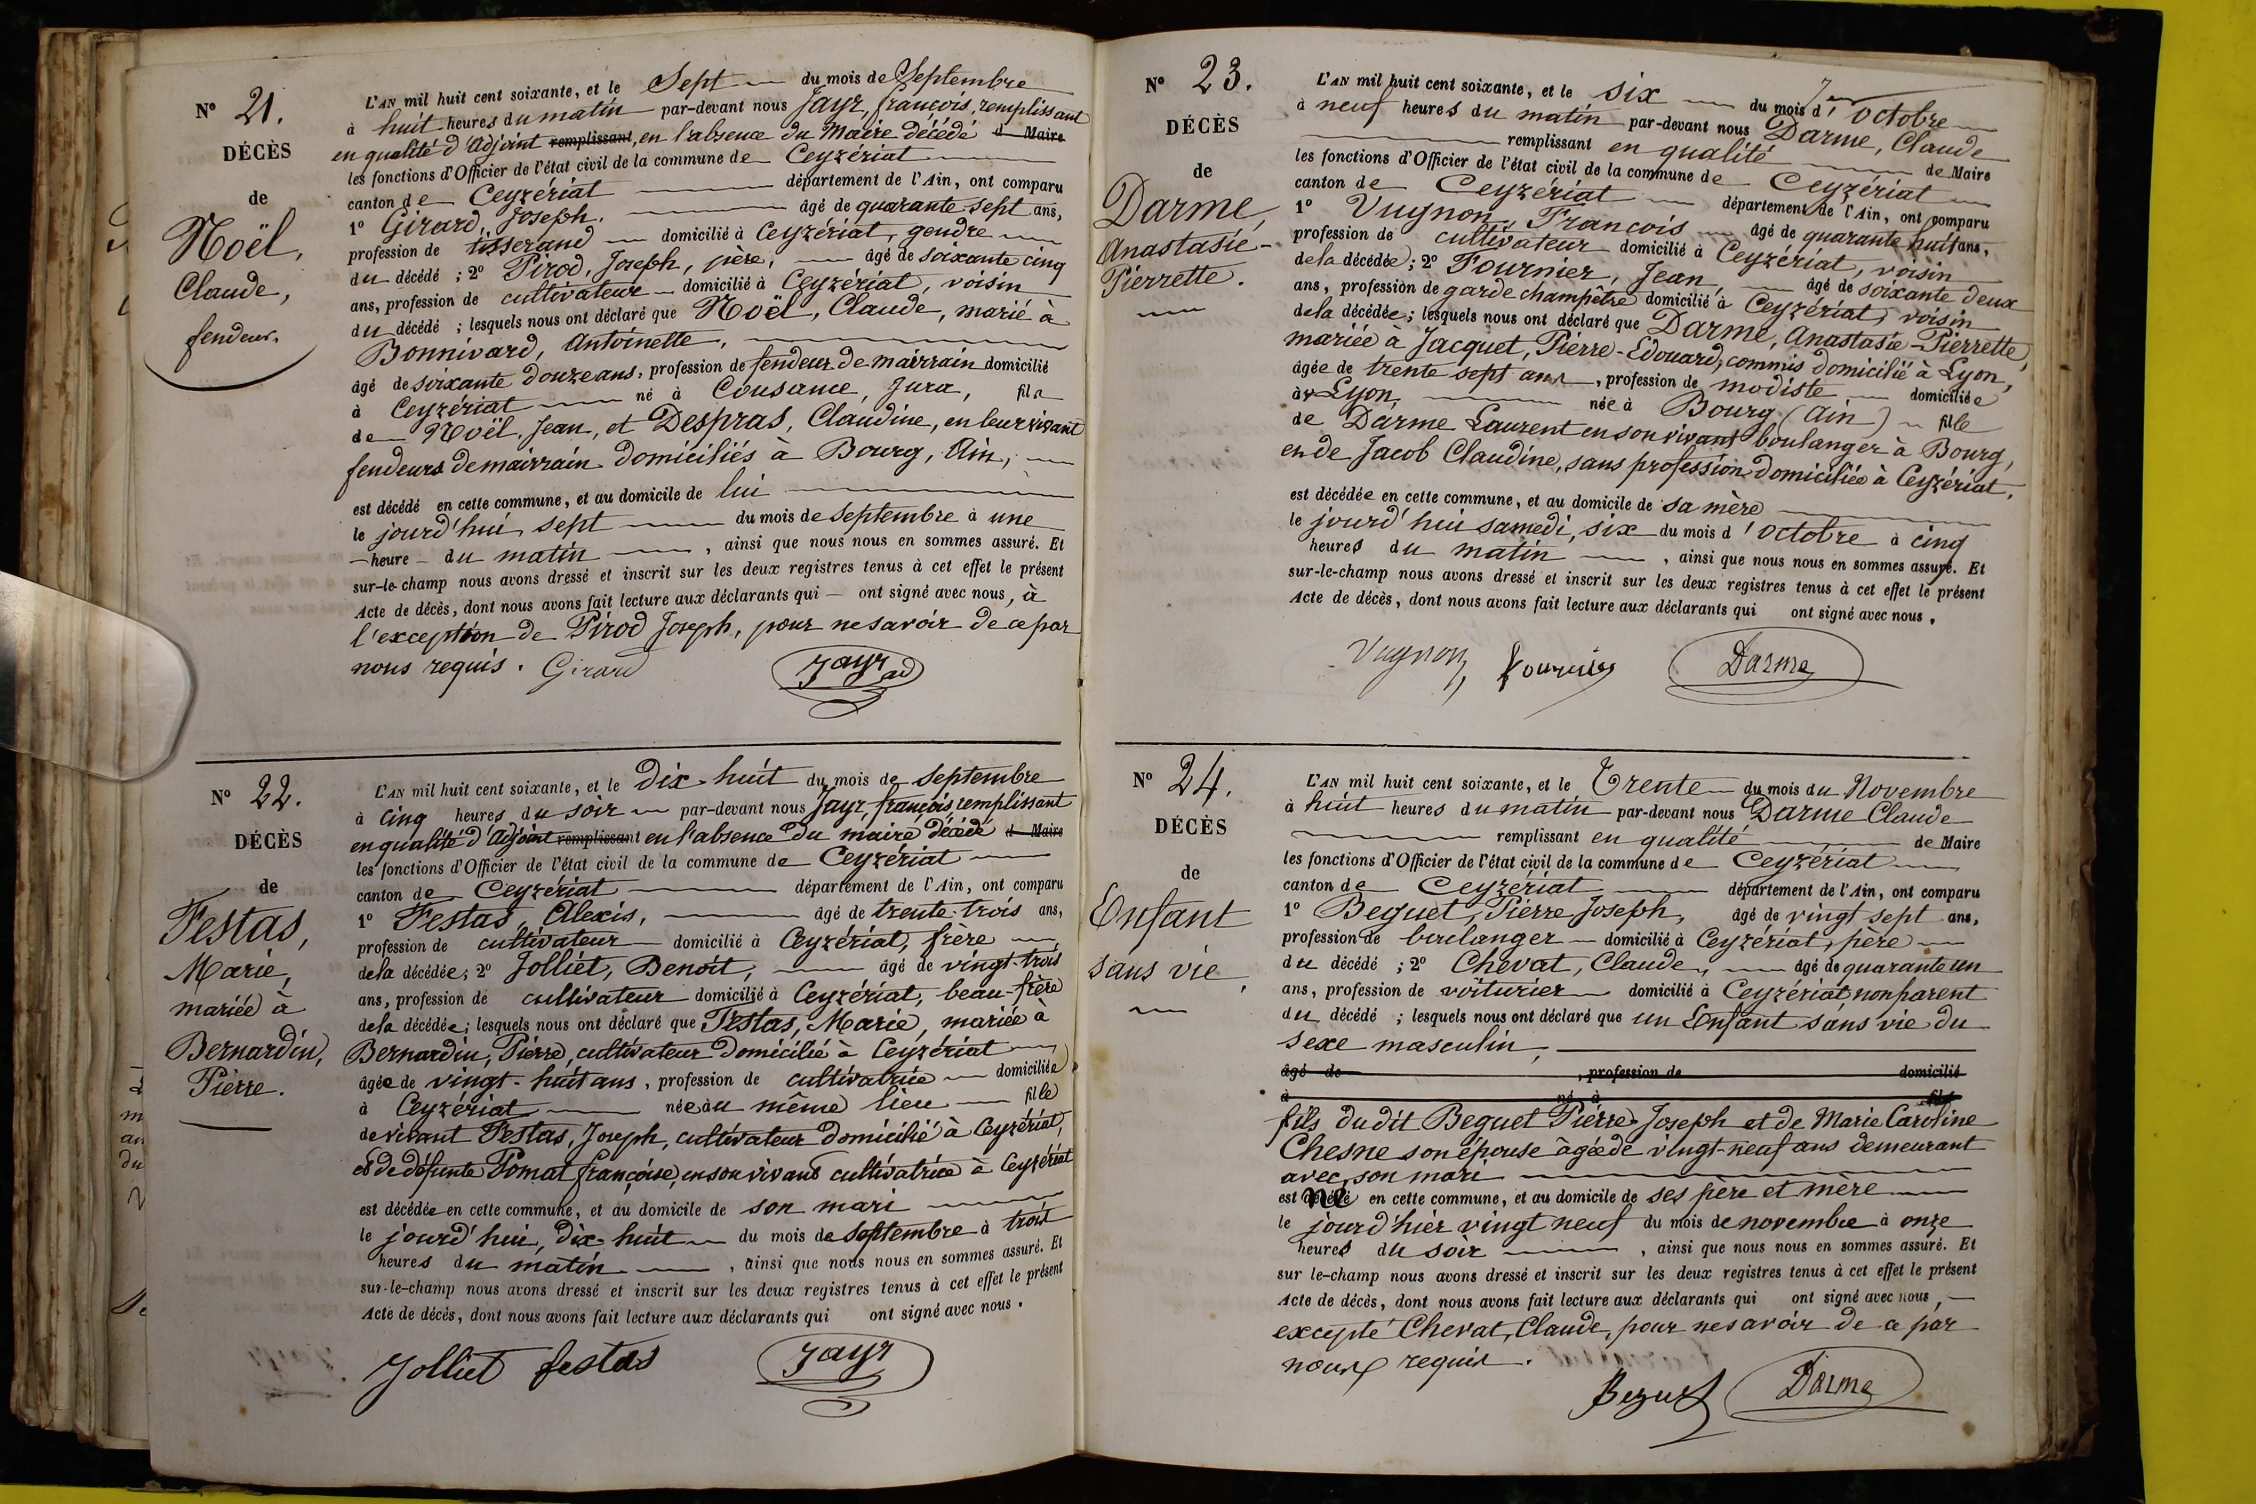 N° 21.
DÉCÈS
de
Noël,
Claude,
fendeur.
L'AN mil huit cent soixante, et le Sept du mois de Septembre
à huit heures du matin par-devant nous Jayr, françois, remplissant
en qualité d'Adjoint remplissant, en l'absence du Maire décédé d Maire
les fonctions d'Officier de l'état civil de la commune de Ceyzériat
canton de Ceyzériat département de l'Ain, ont comparu
1° Girard, Joseph. âgé de quarante sept ans,
profession de tisserand domicilié à Ceyzériat, gendre
du décédé ; 2° Pirod, Joseph, père, âgé de soixante cinq
ans, profession de cultivateur domicilié à Ceyzériat, voisin
du décédé ; lesquels nous ont déclaré que Noël, Claude, marié à
Bonnivard, Antoinette,
âgé de soixante douze ans, profession de fendeur de mairrain domicilié
à Ceyzériat né à Cousance, Jura, fils
de Noël, Jean, et Despras, Claudine, en leur vivant
fendeurs de mairrain domiciliés à Bourg, Ain,
est décédé en cette commune, et au domicile de lui
le jourd'hui sept du mois de septembre à une
heure du matin , ainsi que nous nous en sommes assuré. Et
sur-le-champ nous avons dressé et inscrit sur les deux registres tenus à cet effet le présent
Acte de décès, dont nous avons fait lecture aux déclarants qui ont signé avec nous, à
l'exception de Pirod Joseph, pour ne savoir de ce par
nous requis. Girard Jayr ad
N° 22.
DÉCÈS
de
Festas,
Marie,
mariée à
Bernardin,
Pierre.
L'AN mil huit cent soixante, et le Dix-huit du mois de septembre
à cinq heures du soir par-devant nous Jayr, françois remplissant
en qualité d'Adjoint remplissant en l'absence du maire décédé d Maire
les fonctions d'Officier de l'état civil de la commune de Ceyzériat
canton de Ceyzériat département de l'Ain, ont comparu
1° Festas, Alexis, âgé de trente-trois ans,
profession de cultivateur domicilié à Ceyzériat, frère
de la décédée ; 2° Jolliet, Benoît, âgé de vingt-trois
ans, profession de cultivateur domicilié à Ceyzériat, beau-frère
de la décédée ; lesquels nous ont déclaré que Festas, Marie, mariée à
Bernardin, Pierre, cultivateur domicilié à Ceyzériat
âgée de vingt-huit ans, profession de cultivatrice domiciliée
à Ceyzériat née au même lieu fille
de vivant Festas, Joseph, cultivateur domicilié à Ceyzériat,
et de défunte Pomat françoise, en son vivant cultivatrice à Ceyzériat
est décédée en cette commune, et au domicile de son mari
le jourd'hui, dix-huit du mois de septembre à trois
heures du matin , ainsi que nous nous en sommes assuré. Et
sur-le-champ nous avons dressé et inscrit sur les deux registres tenus à cet effet le présent
Acte de décès, dont nous avons fait lecture aux déclarants qui ont signé avec nous.
Jolliet festas Jayr
N° 23.
DÉCÈS
de
Darme,
Anastasie-
Pierrette.
L'AN mil huit cent soixante, et le six du mois d'octobre
à neuf heures du matin par-devant nous Darme, Claude
remplissant en qualité de Maire
les fonctions d'Officier de l'état civil de la commune de Ceyzériat
canton de Ceyzériat département de l'Ain, ont comparu
1° Vugnon, François âgé de quarante huit ans,
profession de cultivateur domicilié à Ceyzériat, voisin
de la décédée ; 2° Fournier, Jean, âgé de soixante deux
ans, profession de garde champêtre domicilié à Ceyzériat, voisin
de la décédée ; lesquels nous ont déclaré que Darme, Anastasie-Pierrette,
mariée à Jacquet, Pierre-Edouard, commis domicilié à Lyon,
âgée de trente sept ans, profession de modiste domiciliée
à Lyon, née à Bourg (Ain) fille
de Darme Laurent en son vivant boulanger à Bourg,
et de Jacob Claudine, sans profession domiciliée à Ceyzériat,
est décédée en cette commune, et au domicile de sa mère
le jourd'hui samedi, six du mois d'octobre à cinq
heures du matin , ainsi que nous nous en sommes assuré. Et
sur-le-champ nous avons dressé et inscrit sur les deux registres tenus à cet effet le présent
Acte de décès, dont nous avons fait lecture aux déclarants qui ont signé avec nous.
Vugnon, Fournier Darme
N° 24.
DÉCÈS
de
Enfant
sans vie,
L'AN mil huit cent soixante, et le Trente du mois du Novembre
à huit heures du matin par-devant nous Darme Claude
remplissant en qualité de Maire
les fonctions d'Officier de l'état civil de la commune de Ceyzériat
canton de Ceyzériat département de l'Ain, ont comparu
1° Beguet, Pierre Joseph, âgé de vingt sept ans,
profession de boulanger domicilié à Ceyzériat, père
du décédé ; 2° Chevat, Claude, âgé de quarante un
ans, profession de voiturier domicilié à Ceyzériat non parent
du décédé ; lesquels nous ont déclaré que un Enfant sans vie du
sexe masculin,
âgé de , profession de domicilié
à né à fils
fils du dit Beguet Pierre Joseph et de Marie Caroline
Chesne son épouse âgée de vingt-neuf ans demeurant
avec son mari
est né en cette commune, et au domicile de ses père et mère
le jourd'hier vingt neuf du mois de novembre à onze
heures du soir , ainsi que nous nous en sommes assuré. Et
sur le-champ nous avons dressé et inscrit sur les deux registres tenus à cet effet le présent
Acte de décès, dont nous avons fait lecture aux déclarants qui ont signé avec nous,
excepté Chevat, Claude, pour ne savoir de ce par
nous requis.
Beguet Darme